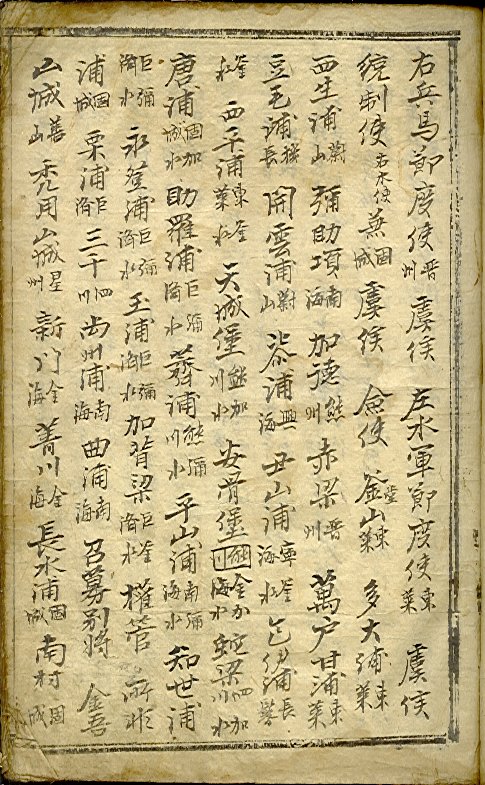 右兵馬節度使晋州 虞侯 左水軍節度使東萊 虞侯
統制使右水使兼固城 虞侯 僉使 釜山堂東萊 多大浦東萊
西生浦蔚山 彌助項南海 加德熊州 赤梁晋州 萬户 甘浦東萊
豆毛浦機長 開雲浦蔚山 柒浦興海 丑山浦寧海釜水 包伊浦長鬐
釜水 西平浦東萊釜水 天城堡熊川加水 安骨堡金海加水 蛇梁四川加水
唐浦固城加水 助羅浦巨済彌水 薺浦熊川彌水 平山浦南海彌水 知世浦
巨済彌水 永登浦巨済彌水 玉浦巨済彌水 加背梁巨済釜水 權管 所非
浦固城 栗浦巨済 三千四川 尚州浦南海 曲浦南海 召募別將 金吾
山城善山 禿用山城星州 新門金海 菁川金海 長水浦固城 南村固城